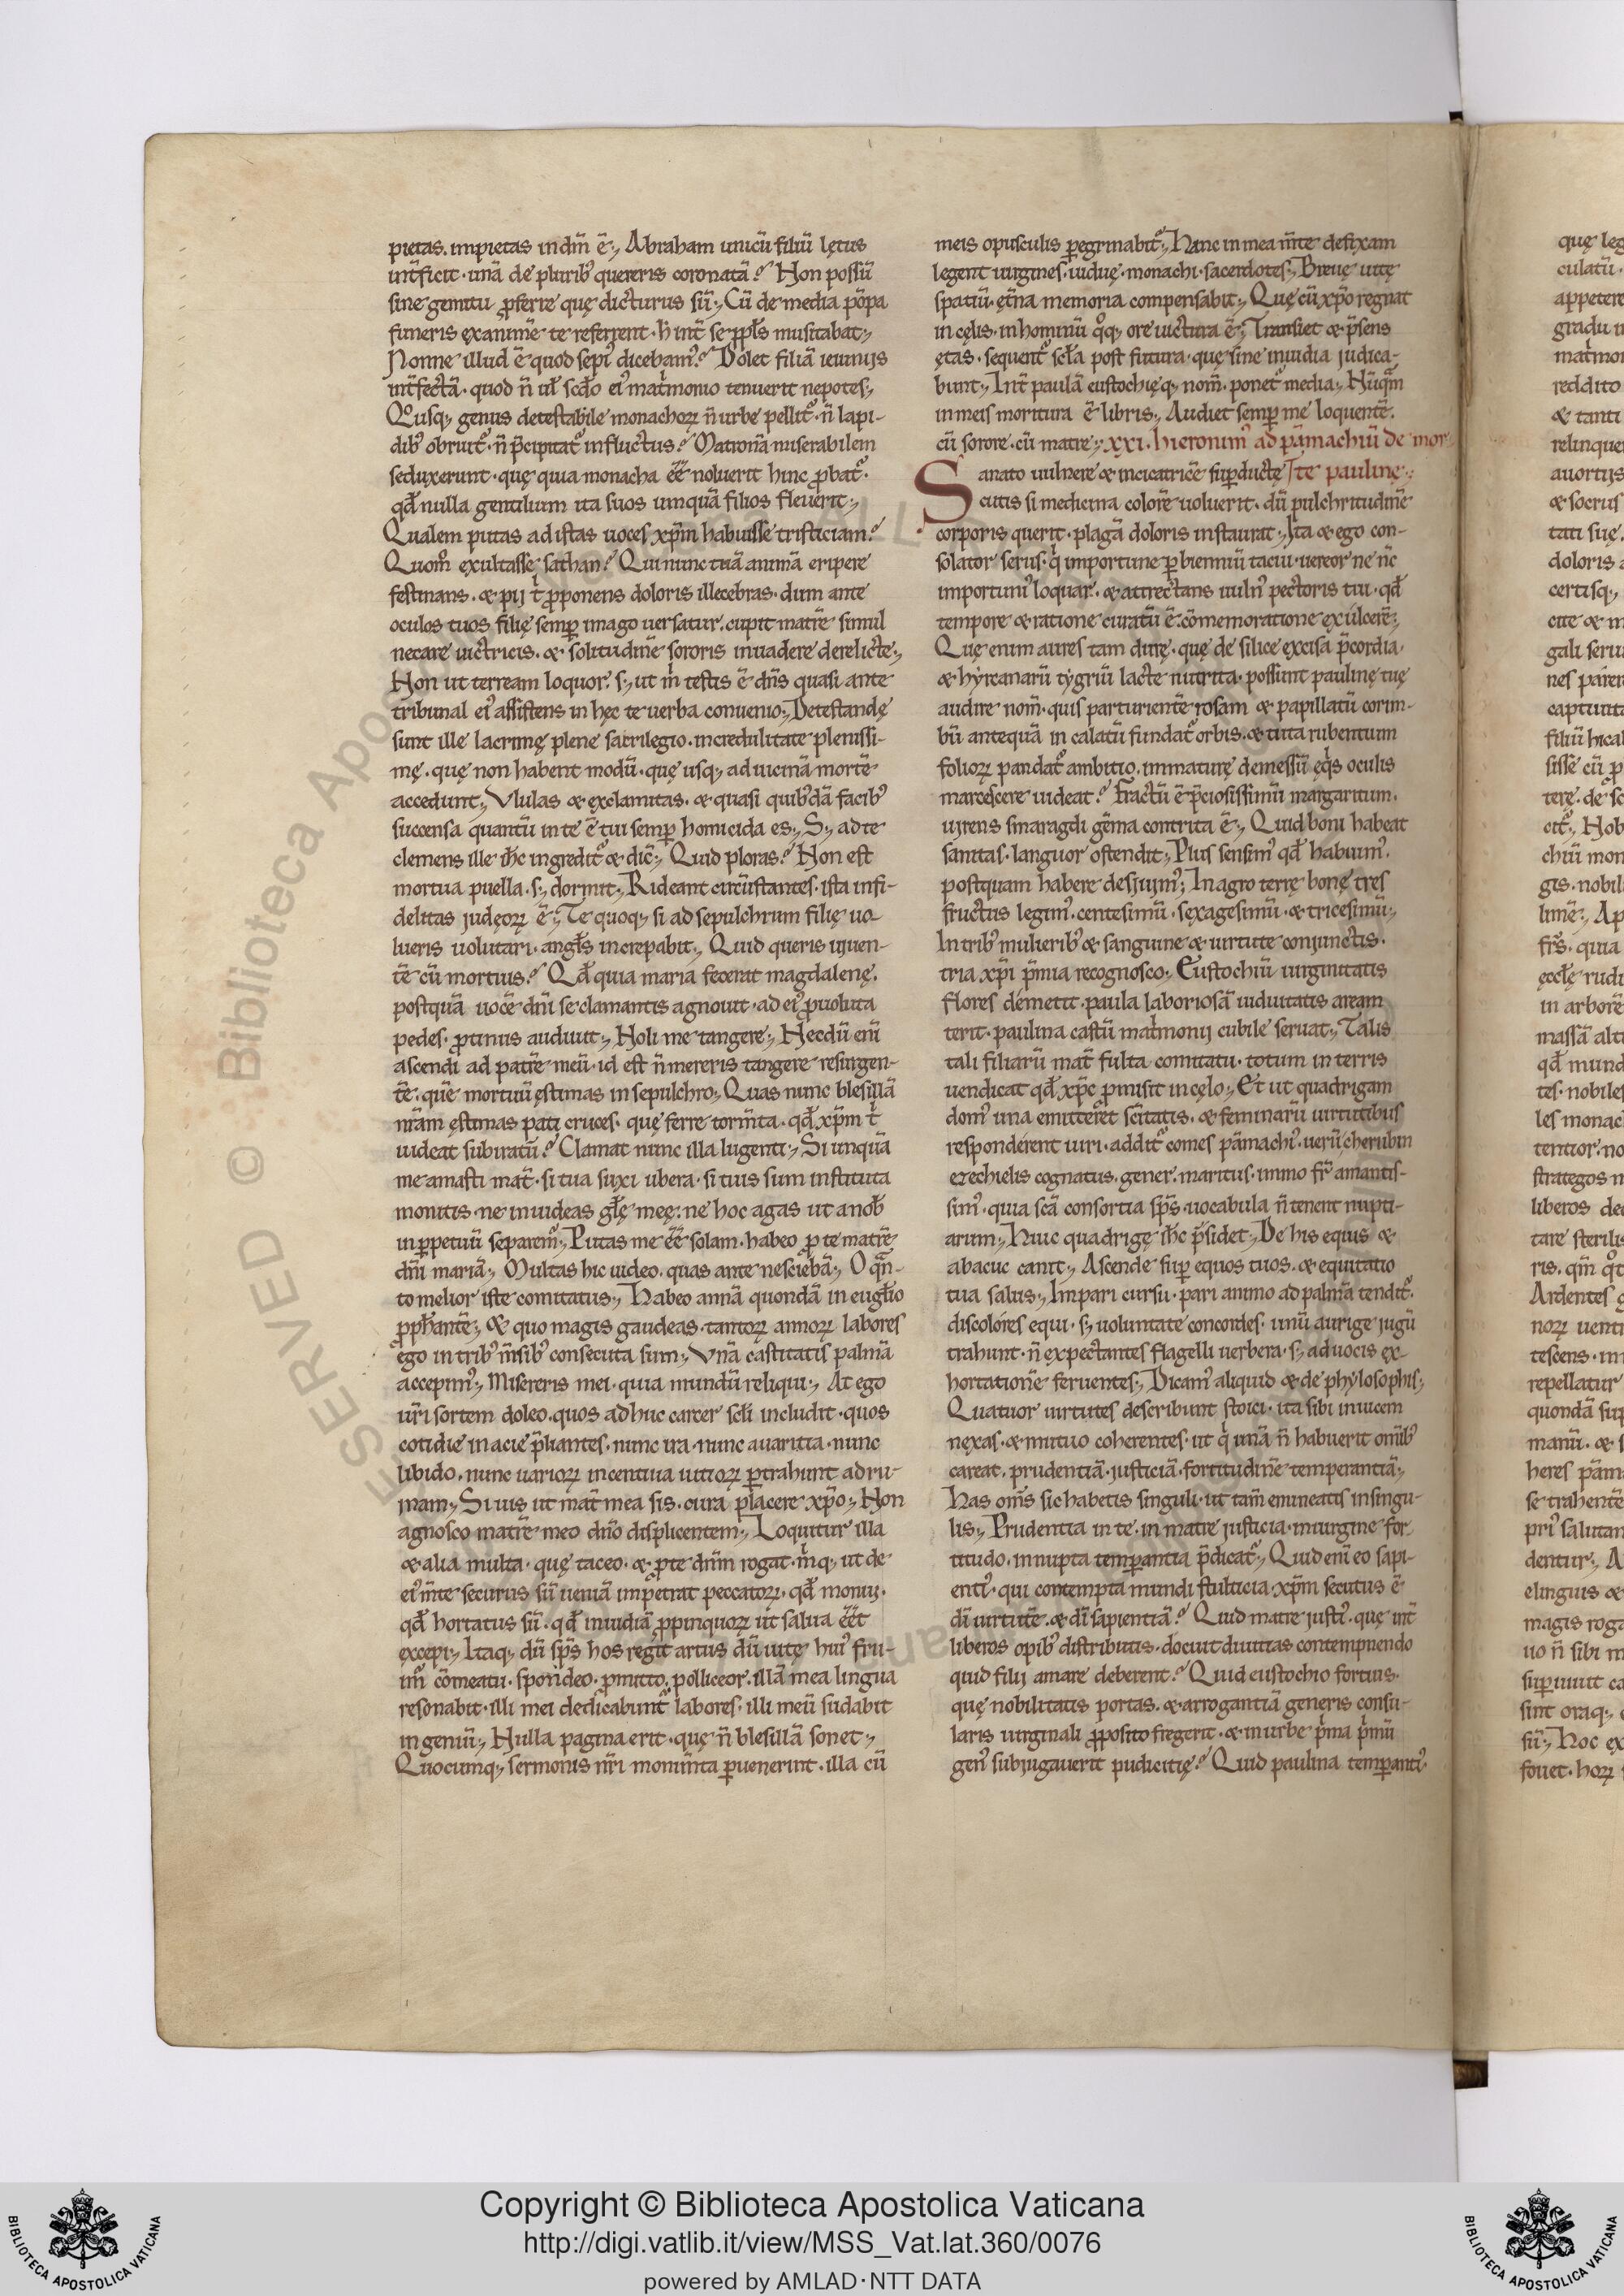 pietas. impietas in dm̄ ē; Abraham unicū filiū lętus
int̄ficit · unā de plurib; quereris coronatā? Non possū
sine gemitu ꝓferre quę dicturus sū; Cū de media pōpa
funeris exanimē te referrent · h̄ int̄ se pp̄ls musitabat;
Nonne illud ē quod sepi᷒ dicebam᷒? Dolet filiā ieiuniis
int̄fectā · quod n̄ ul̄ scd̄o ei᷒ matͥmonio tenuerit nepotes;
Qͦusq; genus detestabile monachoꝝ n̄ urbe pellitͬ · n̄ lapi-
dib; obruitͬ · n̄ p̄cipitatͬ in fluctus? Matronā miserabilem
seduxerunt · quę quia monacha eē̄ noluerit hinc ꝓbatͬ ·
qd̄ nulla gentilium ita suos umquā filios fleuerit;
Qualem putas ad istas uoces xp̄m habuisse tristiciam?
Quom̊ exultasse sathan? Qui nunc tuā animā eripere
festinans · & pij tͥ ꝓponens doloris illecebras · dum ante
oculos tuos filię semꝑ imago uersatur. cupit matrē simul
necare uictricis. & solitudinē sororis inuadere derelicte;
Non ut terream loquor. s; ut m̄ testis ē dn̄s quasi ante
tribunal ei᷒ assistens in hęc te uerba conuenio; Detestandę
sunt ille lacrimę plene sacrilegio. incredulitate plenissi-
mę. quę non habent modū · quę usq; ad uicinā mortē
accedunt; Vlulas & exclamitas. & quasi quib;dā facib;
succensa quantū in te ē tui semꝑ homicida es; S; ad te
clemens ille ih̄c ingreditͬ & dic̄; Quid ploras? Non est
mortua puella. s; dormit; Rideant circūstantes. ista infi-
delitas judęoꝝ ē; Te quoq; si ad sepulchrum filię uo-
lueris uolutari. angl̄s increpabit; Quid queris uiuen-
tē cū mortuis? Qd̄ quia maria fecerat magdalenę.
postquā uocē dn̄i se clamantis agnouit · ad ei᷒ ꝓuoluta
pedes. ꝓtinus audiuit; Noli me tangere; Necdū eni᷒
ascendi ad patrē meū. id est n̄ mereris tangere resurgen-
tē. quē mortuū ęstimas in sepulchro; Quas nunc blesillā
nr̄am ęstimas pati cruces. quę ferre torm̄ta. qd̄ xp̄m tͥ
uideat subiratū? Clamat nunc illa lugenti; Si unquā
me amasti mat̄. si tua suxi ubera. si tuis sum instituta
monitis. ne inuideas gl̄ę meę: ne hoc agas ut a nob̄
in ꝑpetuū separem᷒; Putas me eē̄ solam. habeo ꝓ te matrē
dn̄i mariā; Multas hic uideo. quas ante nesciebā; O qn̄-
to melior iste comitatus; Habeo annā quondā in eugl̄io
ꝓph̄antē; & quo magis gaudeas. tantoꝝ annoꝝ labores
ego in trib; m̄sib; consecuta sum; Vnā castitatis palmā
accepim᷒; Misereris mei. quia mundū reliqui; At ego
ur̄i sortem doleo. quos adhuc carcer scl̄i includit · quos
cotidie in acie p̄liantes. nunc ira. nunc auaritia. nunc
libido. nunc uarioꝝ incentiua uitioꝝ ꝑtrahunt ad ru-
inam; Si uis ut mat̄ mea sis. cura placere xp̄o; Non
agnosco matrē meo dn̄o displicentem; Loquitur illa
& alia multa. quę taceo. & ꝓ te dn̄m rogat. mͥq; ut de
ei᷒ m̄te securus sū ueniā impetrat peccatoꝝ. qd̄ monui.
qd̄ hortatus sū. qd̄ inuidiā ꝓpinquoꝝ ut salua eē̄t
excepi; Itaq; dū sp̄s hos regit artus dū uitę hui᷒ fru-
im᷒ cōmeatu. spondeo. ꝓmitto. polliceor. illā mea lingua
resonabit. illi mei dedicabuntͬ labores. illi meū sudabit
ingeniū; Nulla pagina erit. quę n̄ blesillā sonet;
Quocumq; sermonis nr̄i monum̄ta ꝑuenerint. illa cū
meis opusculis ꝑegrinabitͬ; Hanc in mea m̄te defixam
legent uirgines. uiduę. monachi. sacerdotes; Breue uitę
spatiū. ęt̄na memoria compensabit; Quę cū xp̄o regnat
in cęlis. in hominū qͦq; ore uictura ē; Transiet & p̄sens
ętas. sequentͬ scl̄a post futura. quę sine inuidia judica-
bunt; Int̄ paulā eustochięq; nom̄. ponetͬ media; Nūqᷓm
in meis moritura ē libris; Audiet semꝑ me loquentē.
cū sorore. cū matre; XXI. hieronim᷒ ad pāmachiū de mor
Sanato uulnere & in cicatricē suꝑducte te pauline;
cutis si medicina colorē uoluerit. dū pulchritudinē
corporis querit. plagā doloris instaurat; Ita & ego con-
solator serus. qͥ importune ꝑ bienniū tacui. uereor ne nc̄
importuni᷒ loquar. & attrectans uuln᷒ pectoris tui. qd̄
tempore & ratione curatū ē. cōmemoratione exulcerē;
Quę enim aures tam durę. quę de silice excisa p̄cordia.
& hyrcanarū tygriū lacte nutrita. possunt paulinę tuę
audire nom̄. quis parturientē rosam & papillatū corim-
bū antequā in calatū fundatͬ orbis. & tuta rubentium
folioꝝ pandatͬ ambitio. immaturę demessū eqͥs oculis
marcescere uideat? Fractū ē p̄ciosissimū margaritum.
uirens smaragdi gēma contrita ē; Quid boni habeat
sanitas. languor ostendit; Plus sensim᷒ qd̄ habuim᷒.
postquam habere desiuim᷒; In agro terrę bonę tres
fructus legim᷒. centesimū. sexagesimū. & tricesimū;
In trib; mulierib; & sanguine & uirtute conjunctis.
tria xp̄i p̄mia recognosco; Eustochiū uirginitatis
flores demetit. paula laboriosā uiduitatis aream
terit. paulina castū matͥmonij cubile seruat; Talis
tali filiarū mat̄ fulta comitatu. totum in terris
uendicat qd̄ xp̄c ꝓmisit in cęlo; Et ut quadrigam
dom᷒ una emitteret sc̄itatis. & feminarū uirtutibus
responderent uiri. additͬ comes pāmachi᷒. uerū cherubin
ezechielis cognatus. gener. maritus. immo fr̄ amantis-
sim᷒. quia sc̄a consortia sp̄s. uocabula n̄ tenent nupti-
arum; Huic quadrigę ih̄c p̄sidet; De his equis &
abacuc canit; Ascende suꝑ equos tuos. & equitatio
tua salus; Impari cursu. pari animo ad palmā tenditͬ.
discolores equi. s; uoluntate concordes. unū aurige jugū
trahunt. n̄ expectantes flagelli uerbera. s; ad uocis ex-
hortationē feruentes; Dicam᷒ aliquid & de phylosophis;
Quatuor uirtutes describunt stoici. ita sibi inuicem
nexas. & mutuo coherentes. ut qͥ unā n̄ habuerit omīb;
careat. prudentiā. justiciā. fortitudinē temperantiā;
Has om̄s sic habetis singuli. ut tam̄ emineatis in singu-
lis; Prudentia in te. in matre justicia. in uirgine for-
titudo. in nupta temꝑantia p̄dicatͬ; Quid eni᷒ eo sapi-
enti᷒. qui contempta mundi stulticia. xp̄m secutus ē
dī uirtutē. & dī sapientiā? Quid matre justi᷒. quę int̄
liberos opib; distributis. docuit diuitias contempnendo
quid filij amare deberent? Quid eustochio fortius.
quę nobilitatis portas. & arrogantiā generis consu-
laris uirginali ꝓposito fregerit. & in urbe pͥma pͥmū
gen᷒ subjugauerit pudicitię? Quid paulina temꝑanti᷒.
Copyright © Biblioteca Apostolica Vaticana
http://digi.vatlib.it/view/MSS_Vat.lat.360/0076
powered by AMLAD·NTT DATA
BIBLIOTECA APOSTOLICA VATICANA
BIBLIOTECA APOSTOLICA VATICANA